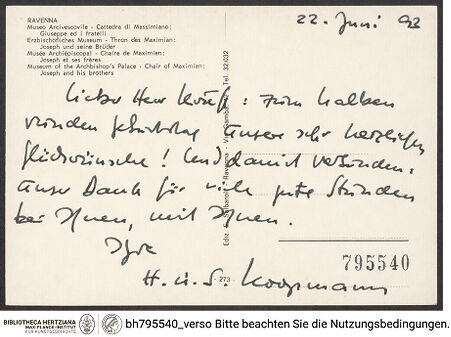 22. Juni 92
RAVENNA
Museo Arcivescovile - Cattedra di Massimiano:
Giuseppe ed i fratelli
Erzbischöfliches Museum - Thron des Maximian:
Joseph und seine Brüder
Musée Archiépiscopal - Chaire de Maximien:
Joseph et ses frères
Museum of the Archbishop's Palace - Chair of Maximian:
Joseph and his brothers
Lieber Herr : zum halben
runden Geburtstag unsere sehr herzlichen
Glückwünsche! Und damit verbunden:
unser Dank für viele gute Stunden
bei Ihnen, mit Ihnen.
Ihre
H. u. S. Koopmann
- 273 -
Tel. 32.032
795540
BIBLIOTHECA HERTZIANA
MAX-PLANCK-INSTITUT
FÜR KUNSTGESCHICHTE
bh795540_verso Bitte beachten Sie die Nutzungsbedingungen.